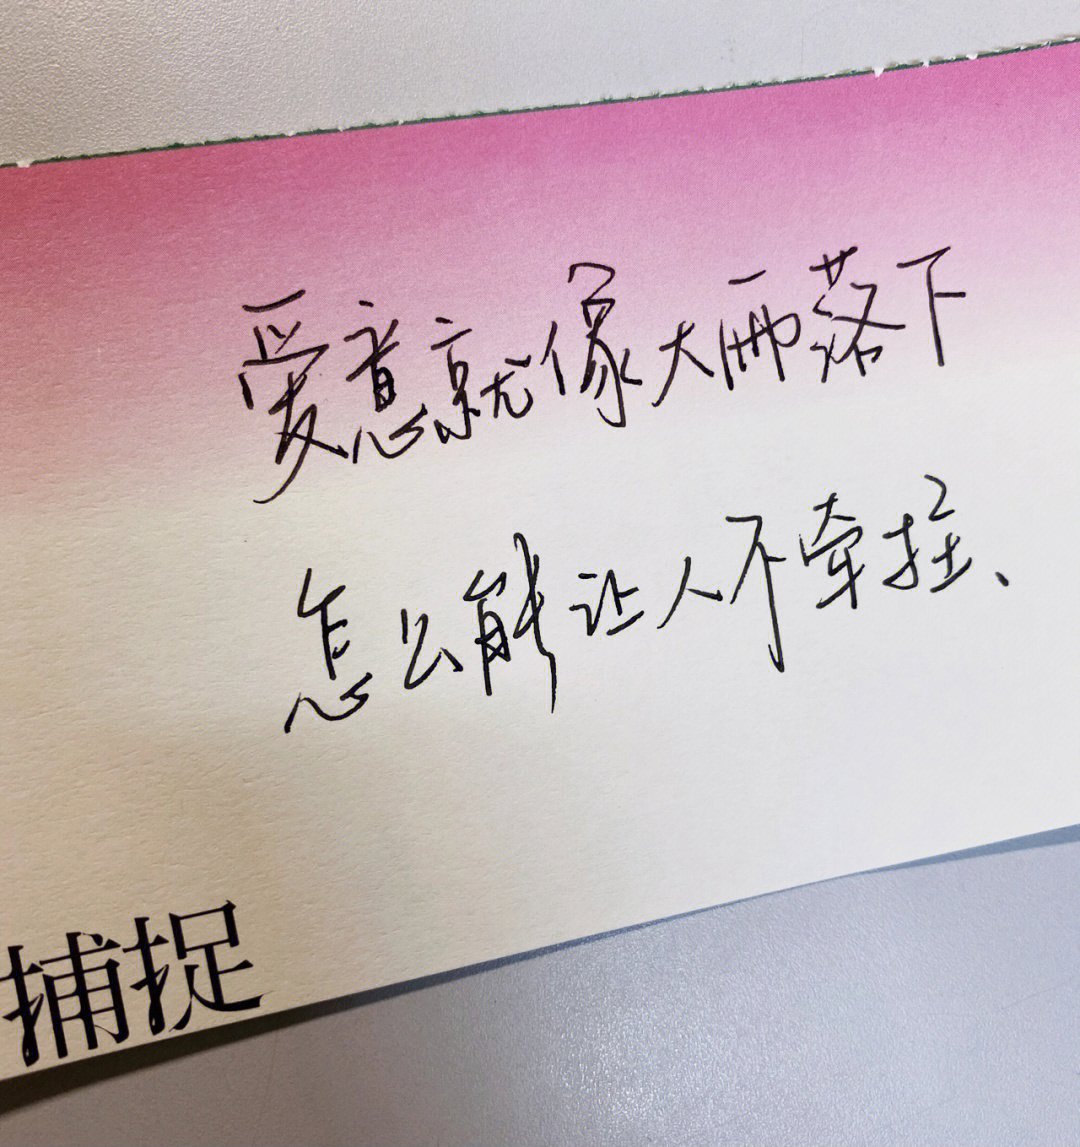 爱意就像大雨落下
怎么能让人不牵挂、
捕捉